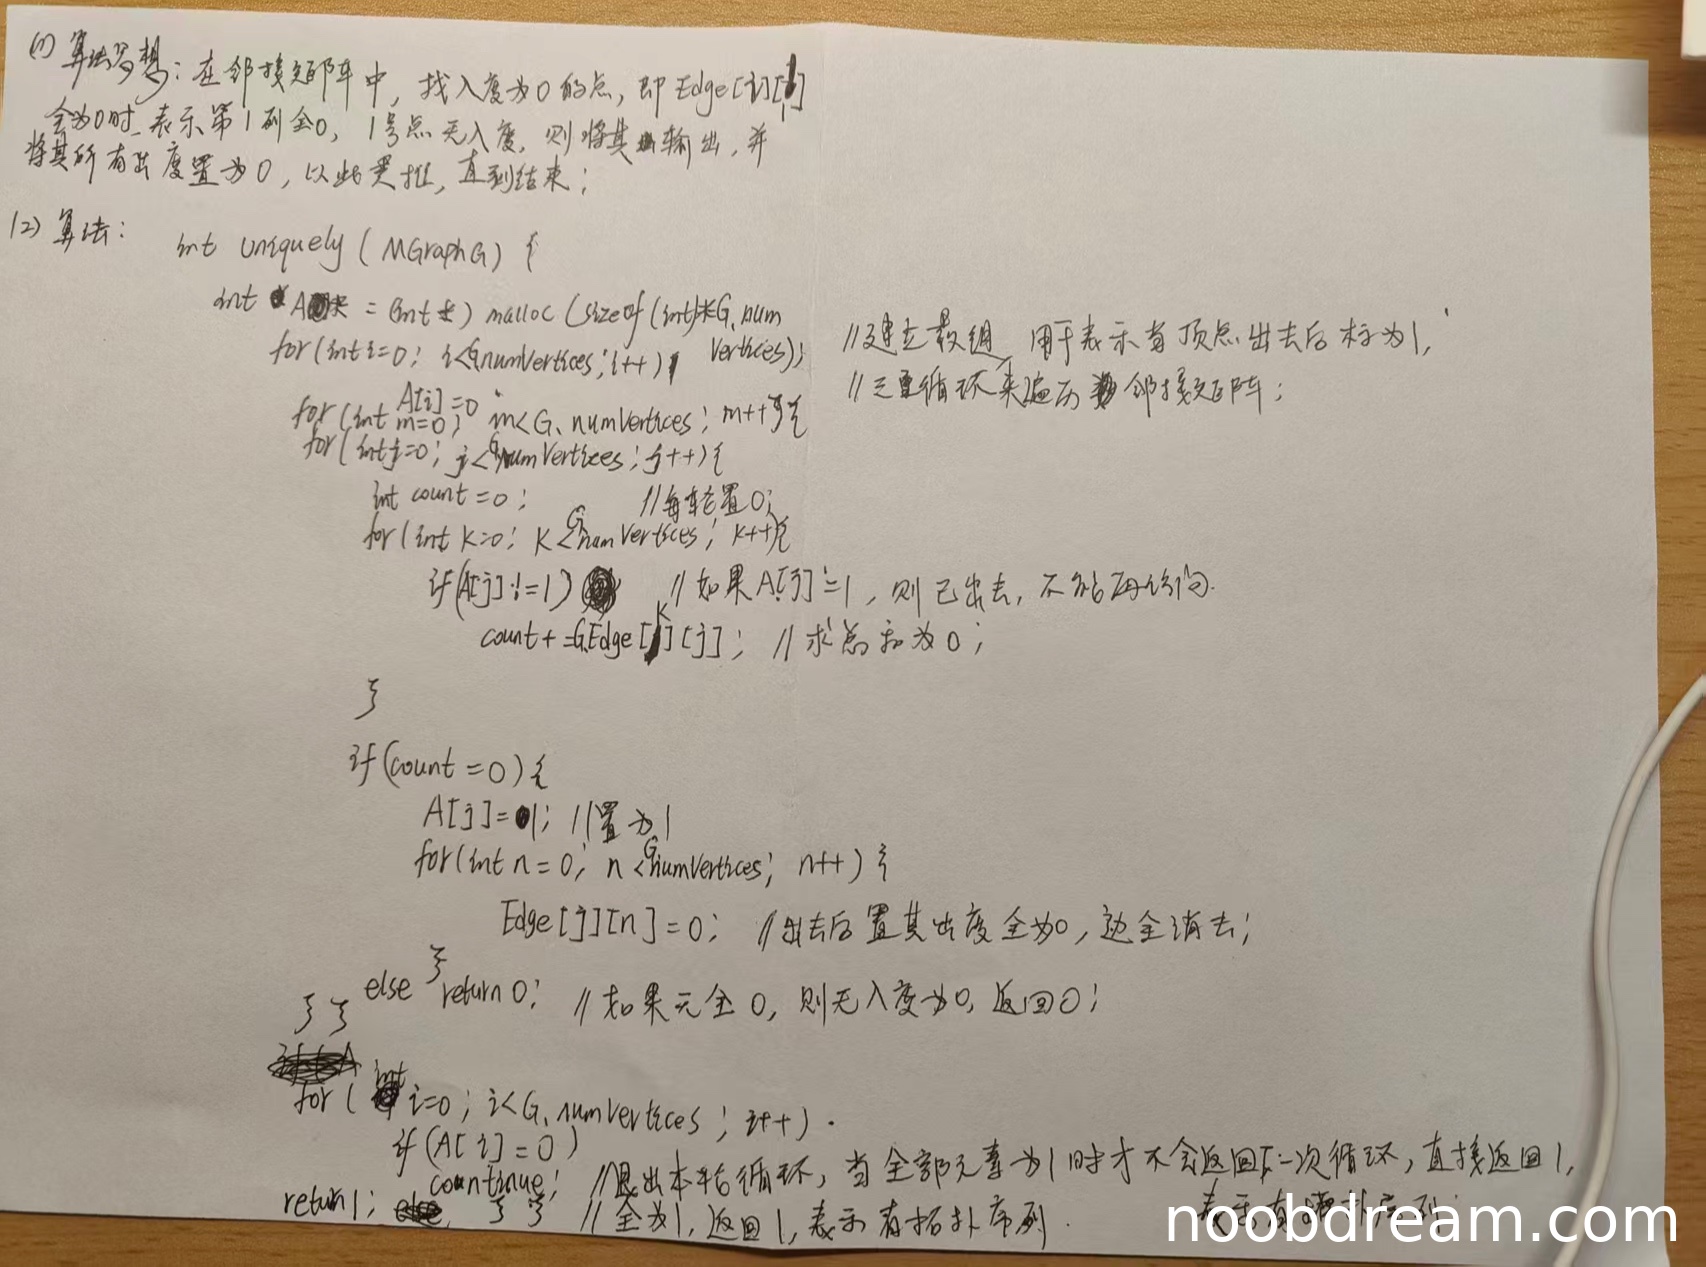 (1) 算法思想: 在邻接矩阵中, 找入度为0的点, 即Edge[i][1]
全为0时 表示第1列全0, 1号点无入度, 则将其输出, 并
将其所有出度置为0, 以此类推, 直到结束;
(2) 算法:
int uniquely (MGraph G) {
int *A = (int *) malloc (sizeof(int)*G.numVertices); //建立数组, 用于表示当顶点出去后标为1,
for(int i=0; i<G.numVertices; i++) //三重循环来遍历邻接矩阵;
A[i]=0
for(int m=0; m<G.numVertices; m++){
for(int j=0; j<G.numVertices; j++){
int count=0; //每轮置0;
for(int k=0; k<G.numVertices; k++){
if(A[j]!=1) //如果A[j]=1, 则已出去, 不能再访问.
count+=G.Edge[k][j]; //求总和为0;
}
if(count=0){
A[j]=1; //置为1
for(int n=0; n<G.numVertices; n++){
Edge[j][n]=0; //出去后置其出度全为0, 边全消去;
}
else return 0; //如果无全0, 则无入度为0, 返回0;
} }
for(int i=0; i<G.numVertices; i++).
if(A[i]=0)
countinue; //退出本轮循环, 当全部元素为1时才不会返回下一次循环, 直接返回1,
表示有拓扑序列;
return 1; } } //全为1, 返回1, 表示有拓扑序列.
noobdream.com